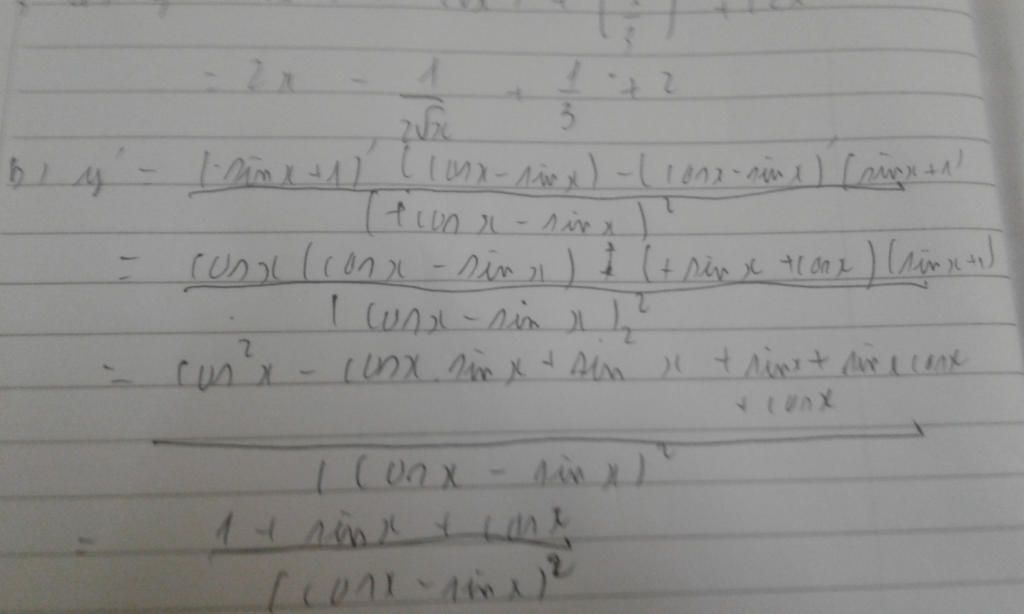 = 2x - 1/(2√x) + 1/3 + 2
b, y' = ((sinx+1)' (cosx - sinx) - (cosx - sinx)' (sinx+1))/(+cosx - sinx)²
= (cosx (cosx - sinx) + (+sinx + cosx)(sinx+1))/(cosx - sinx)²
= (cos²x - cosx.sinx + sin²x + sinx + sinx cosx + cosx)/(cosx - sinx)²
= (1 + sinx + cosx)/(cosx - sinx)²